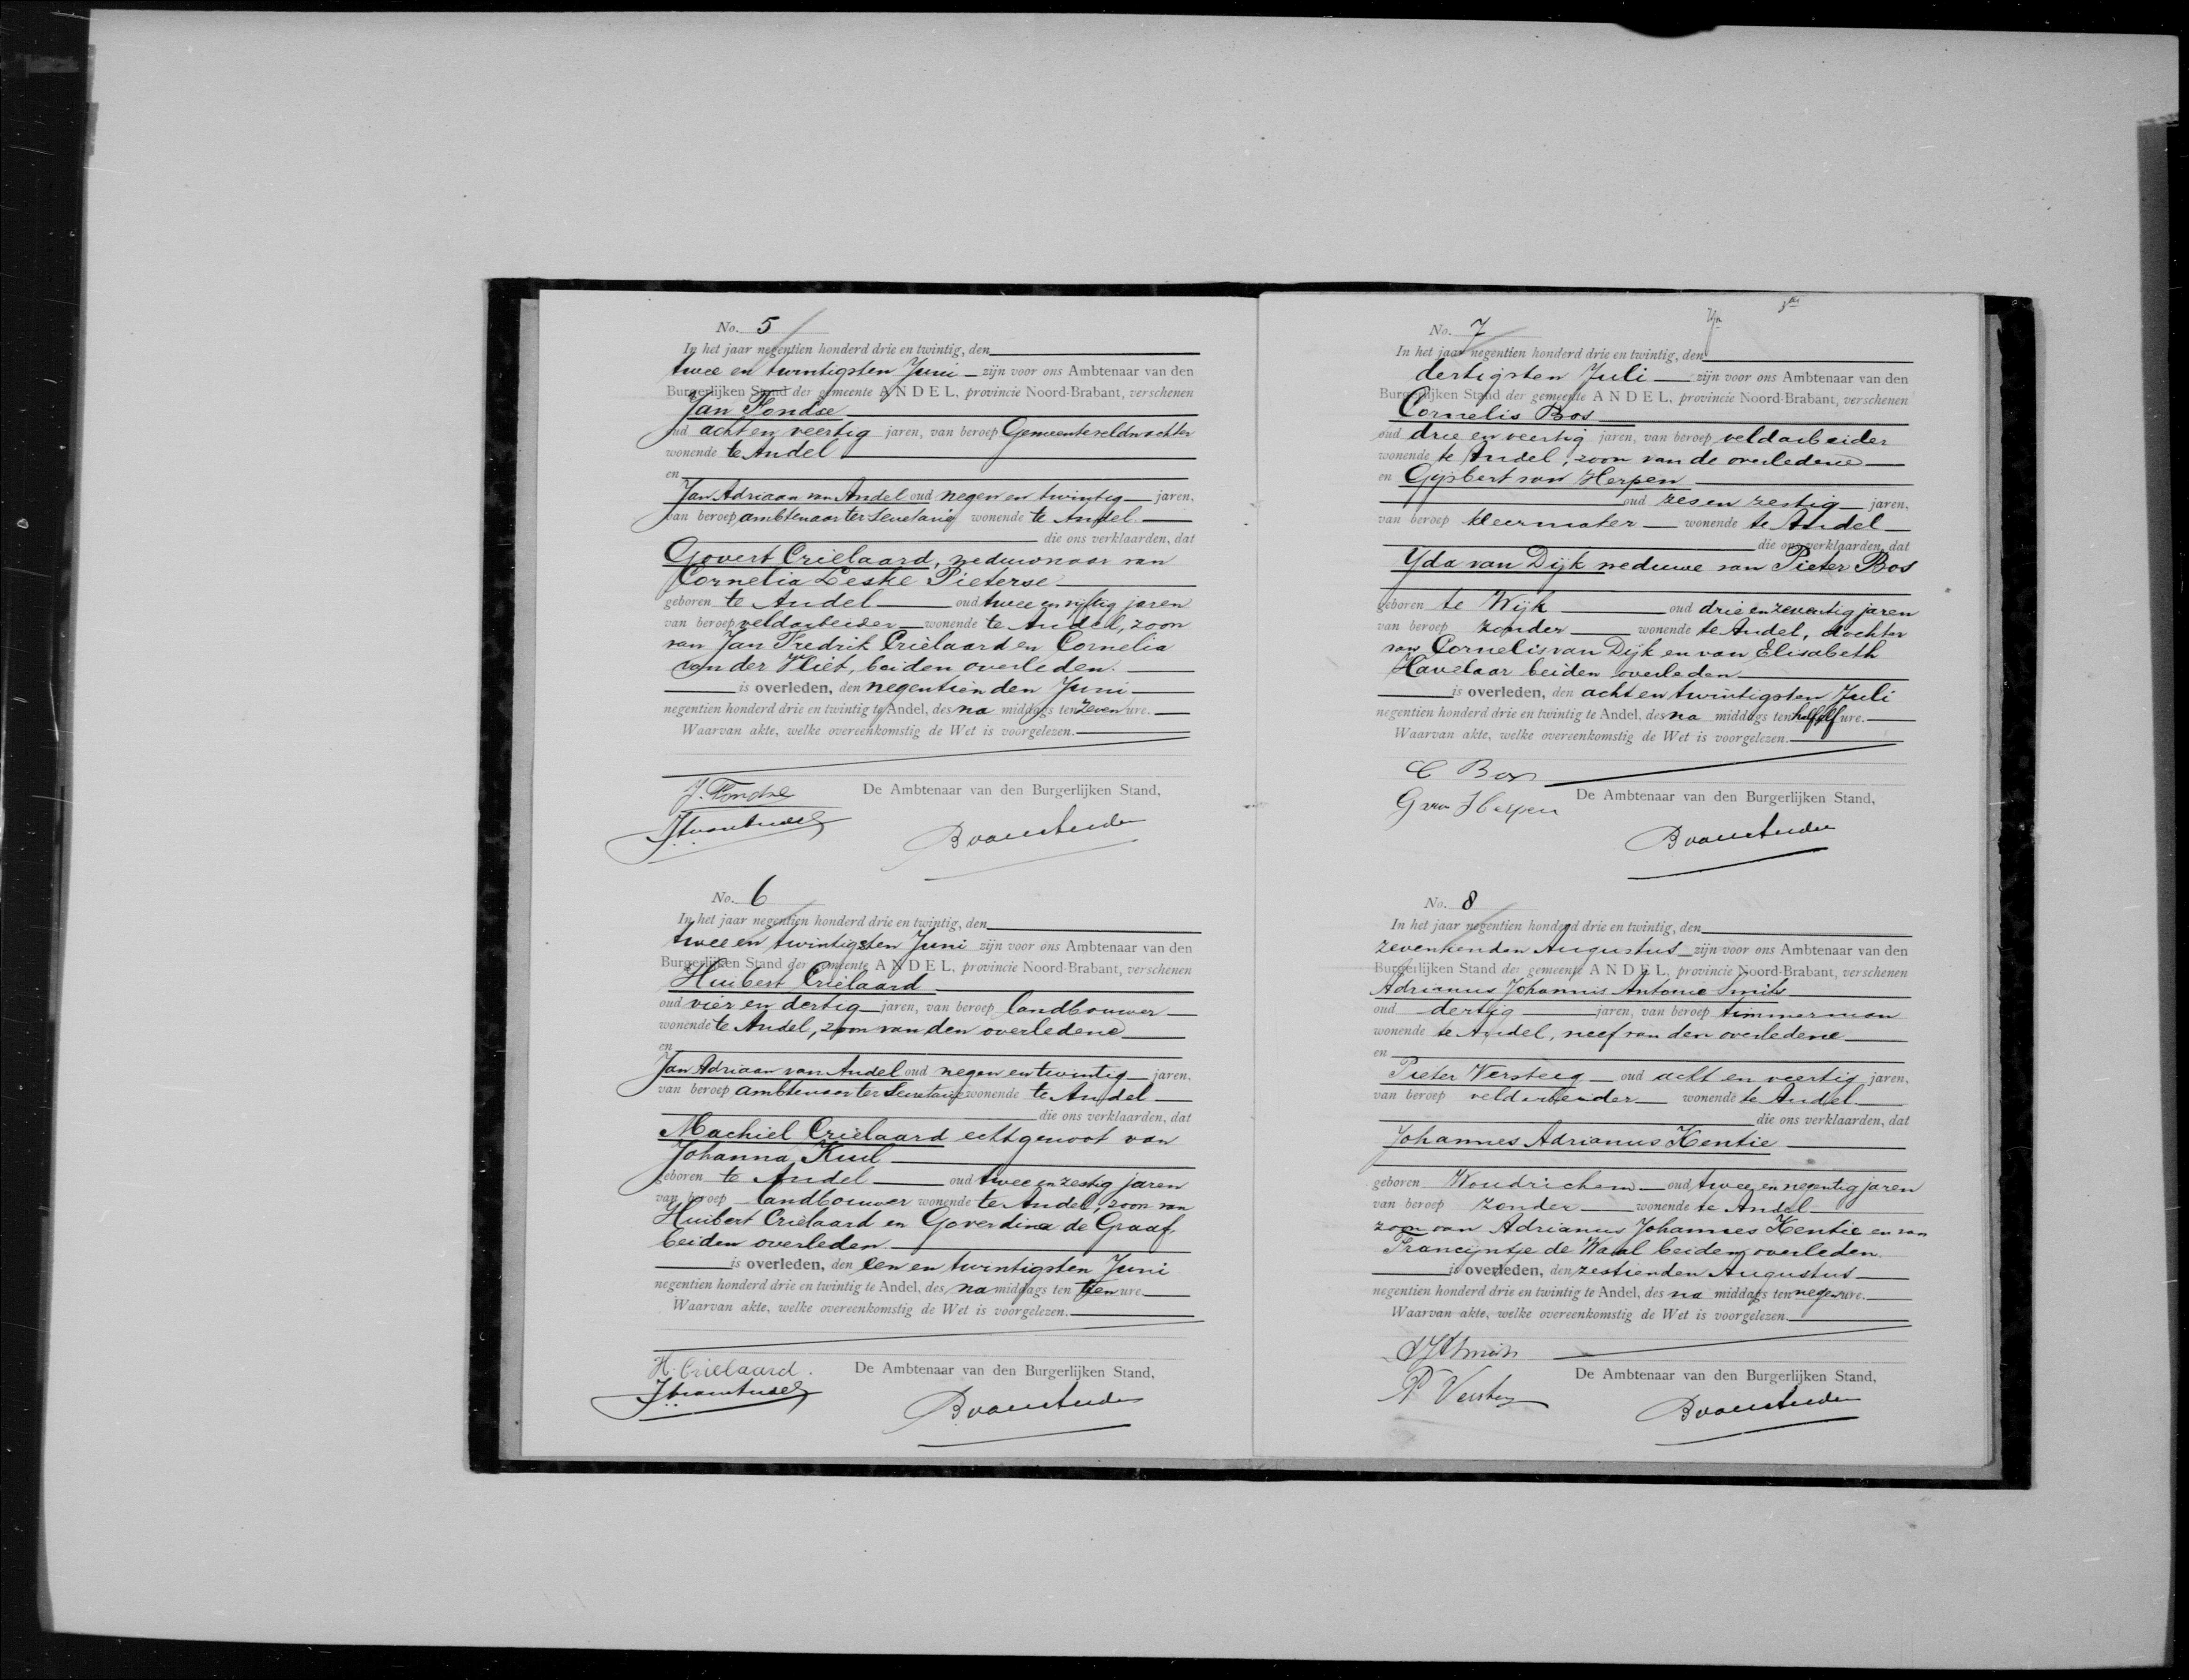 No. 5
In het jaar negentien honderd drie en twintig, den
twee en twintigsten Juni zijn voor ons Ambtenaar van den
Burgerlijken Stand der gemeente ANDEL, provincie Noord-Brabant, verschenen
Jan Fondse
oud acht en veertig jaren, van beroep Gemeenteveldwachter
wonende te Andel
en
Jan Adriaan van Andel oud negen en twintig jaren,
van beroep ambtenaar ter Secretarie wonende te Andel
die ons verklaarden, dat
Govert Criélaard, weduwnaar van
Cornelia Leske Pieterse
geboren te Andel oud twee en vijftig jaren
van beroep veldarbeider wonende te Andel, zoon
van Jan Fredrik Criëlaard en Cornelia
van der Vliet, beiden overleden.
is overleden, den negentienden Juni
negentien honderd drie en twintig te Andel, des na middags ten zeven ure.
Waarvan akte, welke overeenkomstig de Wet is voorgelezen.
J. Fondse
De Ambtenaar van den Burgerlijken Stand,
JAvanAndel
BvanAndel
No. 6
In het jaar negentien honderd drie en twintig, den
twee en twintigsten Juni zijn voor ons Ambtenaar van den
Burgerlijken Stand der gemeente ANDEL, provincie Noord-Brabant, verschenen
Huibert Criëlaard
oud vier en dertig jaren, van beroep landbouwer
wonende te Andel, zoon van den overledene
en
Jan Adriaan van Andel oud negen en twintig jaren,
van beroep ambtenaar ter Secretarie wonende te Andel
die ons verklaarden, dat
Machiel Criëlaard echtgenoot van
Johanna Kuil
geboren te Andel oud twee en zestig jaren
van beroep landbouwer wonende te Andel, zoon van
Huibert Criëlaard en Goverdina de Graaf
beiden overleden.
is overleden, den een en twintigsten Juni
negentien honderd drie en twintig te Andel, des na middags ten tien ure.
Waarvan akte, welke overeenkomstig de Wet is voorgelezen.
H. Criëlaard.
De Ambtenaar van den Burgerlijken Stand,
JAvanAndel
BvanAndel
No. 7
In het jaar negentien honderd drie en twintig, den
dertigsten Juli zijn voor ons Ambtenaar van den
Burgerlijken Stand der gemeente ANDEL, provincie Noord-Brabant, verschenen
Cornelis Bos
oud drie en veertig jaren, van beroep veldarbeider
wonende te Andel, zoon van de overledene
en Gijsbert van Herpen
oud zes en zestig jaren,
van beroep kleermaker wonende te Andel
die ons verklaarden, dat
Yda van Dijk weduwe van Pieter Bos
geboren te Wijk oud drie en zeventig jaren
van beroep zonder wonende te Andel, dochter
van Cornelis van Dijk en van Elisabeth
Havelaar beiden overleden
is overleden, den acht en twintigsten Juli
negentien honderd drie en twintig te Andel, des na middags ten half elf ure.
Waarvan akte, welke overeenkomstig de Wet is voorgelezen.
C Bos
De Ambtenaar van den Burgerlijken Stand,
G van Herpen
BvanAndel
No. 8
In het jaar negentien honderd drie en twintig, den
zeventienden Augustus zijn voor ons Ambtenaar van den
Burgerlijken Stand der gemeente ANDEL, provincie Noord-Brabant, verschenen
Adrianus Johannis Antonie Smits
oud dertig jaren, van beroep timmerman
wonende te Andel, neef van den overledene
en
Pieter Versteeg oud acht en veertig jaren,
van beroep veldarbeider wonende te Andel
die ons verklaarden, dat
Johannes Adrianus Kentie
geboren Woudrichem oud twee en negentig jaren
van beroep zonder wonende te Andel
zoon van Adrianus Johannes Kentie en van
Francijntje de Waal beiden overleden.
is overleden, den zestienden Augustus
negentien honderd drie en twintig te Andel, des na middags ten negen ure.
Waarvan akte, welke overeenkomstig de Wet is voorgelezen.
AJASmits
De Ambtenaar van den Burgerlijken Stand,
P Versteeg
BvanAndel